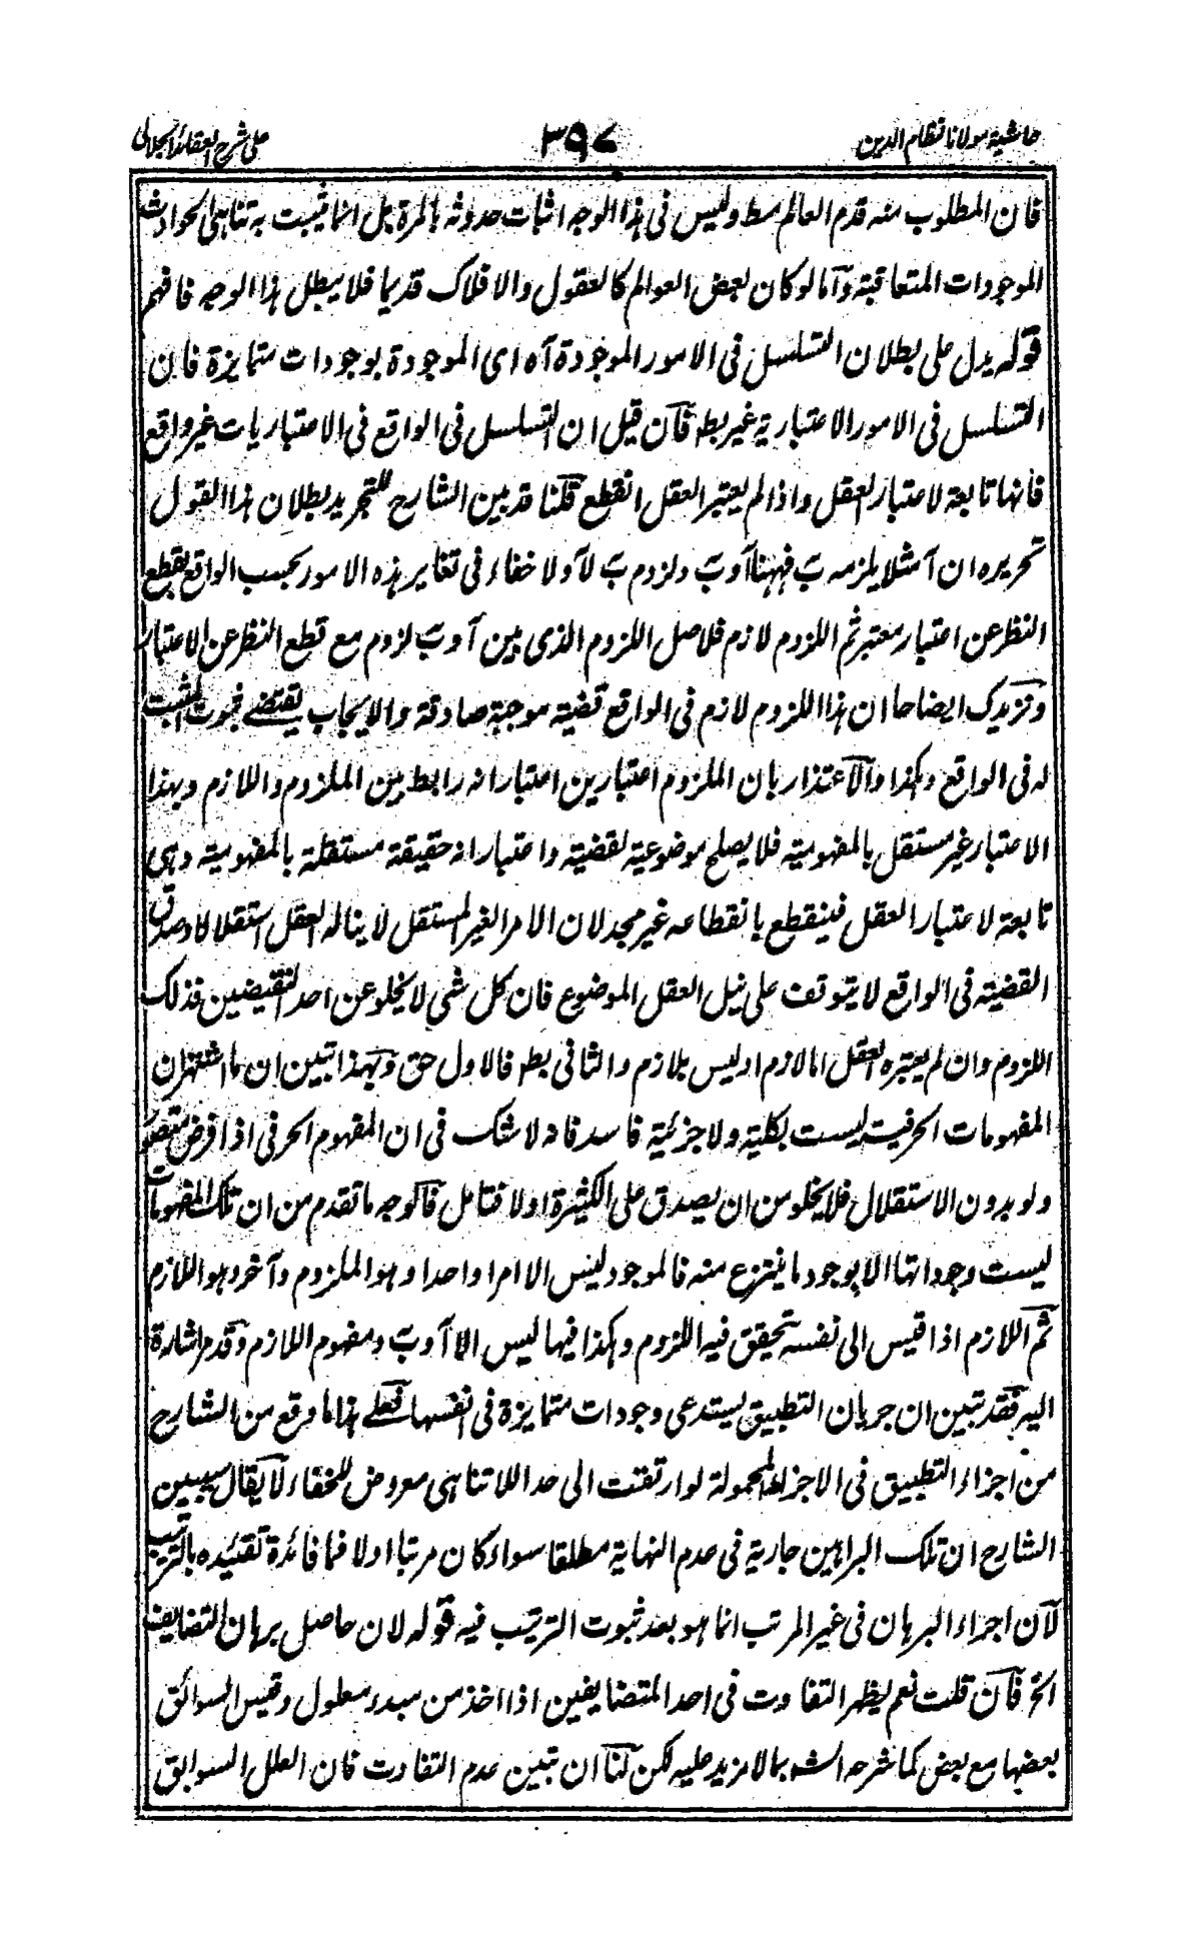 حاشیة مولانا نظام الدین
۳۹۷
علی شرح العقائد الجلالی
فان المطلوب منه قدم العالم مط ولیس فی هذا الوجه اثبات حدوثه بالمرة بل انما یثبت به تناهی الحوادث
الموجودات المتعاقبة وآما لو کان بعض العوالم کالعقول والافلاک قدیما فلا یبطل هذا الوجه فافهم
قوله یدل علی بطلان التسلسل فی الامور الموجودة آه ای الموجودة بوجودات متمایزة فان
التسلسل فی الامور الاعتباریة غیر بط فآن قیل ان التسلسل فی الواقع فی الاعتباریات غیر واقع
فانها تابعة لاعتبار العقل واذا لم یعتبر العقل انقطع قلنا قد بین الشارح للتجرید بطلان هذا القول
تحریره ان آ مثلا یلزمه ب فههنا آ و ب ولزوم ب لآ ولا خفاء فی تغایر هذه الامور بحسب الواقع بقطع
النظر عن اعتبار معتبر ثم اللزوم لازم فلاصل اللزوم الذی بین آ و ب لزوم مع قطع النظر عن الاعتبار
ونزیدک ایضاحا ان هذا اللزوم لازم فی الواقع قضیة موجبة صادقة والایجاب یقتضے ثبوت المثبت
له فی الواقع وهکذا والآعتذار بان الملزوم اعتبارین اعتبار انه رابط بین الملزوم واللازم وبهذا
الاعتبار غیر مستقل بالمفهومیة فلا یصلح موضوعیة لقضیة واعتبار انه حقیقة مستقلة بالمفهومیة وهی
تابعة لاعتبار العقل فینقطع بانقطاعه غیر مجد لان الامر الغیر المستقل لا یناله العقل استقلالا وصدق
القضیة فی الواقع لا یتوقف علی نیل العقل الموضوع فان کل شی لا یخلو عن احد النقیضین فذلک
اللزوم وان لم یعتبره العقل اما لازم او لیس بلازم والثانی بط فالاول حق وبهذا تبین ان ما اشتهر ان
المفهومات الحرفیة لیست بکلیة ولا جزئیة فاسد فانه لا شک فی ان المفهوم الحرفی اذا فرض متصورا
ولو بدون الاستقلال فلا یخلو من ان یصدق علی الکثیرة اولا فتامل فآلوجه ما تقدم من ان تلک المفهومات
لیست وجوداتها الا بوجود ما ینتزع منه فالموجود لیس الا امرا واحدا وهو الملزوم وآخر وهو اللازم
ثم اللازم اذا قیس الی نفسه تحقق فیه اللزوم وهکذا فیها لیس الا آ و ب ومفهوم اللازم وقد مر اشارة
الیه فقد تبین ان جریان التطبیق یستدعی وجودات متمایزة فی انفسها فعلے هذا ما وقع من الشارح
من اجراء التطبیق فی الاجزاء المحمولة لو ارتقت الی حد اللاتناهی معروض للخفاء لآ یقال سیبین
الشارح ان تلک البراهین جاریة فی عدم النهایة مطلقا سواء کان مرتبا اولا فما فائدة تقییده بالترتیب
لآن اجراء البرهان فی غیر المرتب انما هو بعد ثبوت الترتیب فیه قوله لان حاصل برهان التضایف
الخ فآن قلت نعم یظهر التفاوت فی احد المتضایفین اذا اخذ من مبدء معلول وقیس السوابق
بعضها مع بعض کما شرحه الشه بما لا مزید علیه لکن لنا ان تبین عدم التفاوت فان العلل السوابق